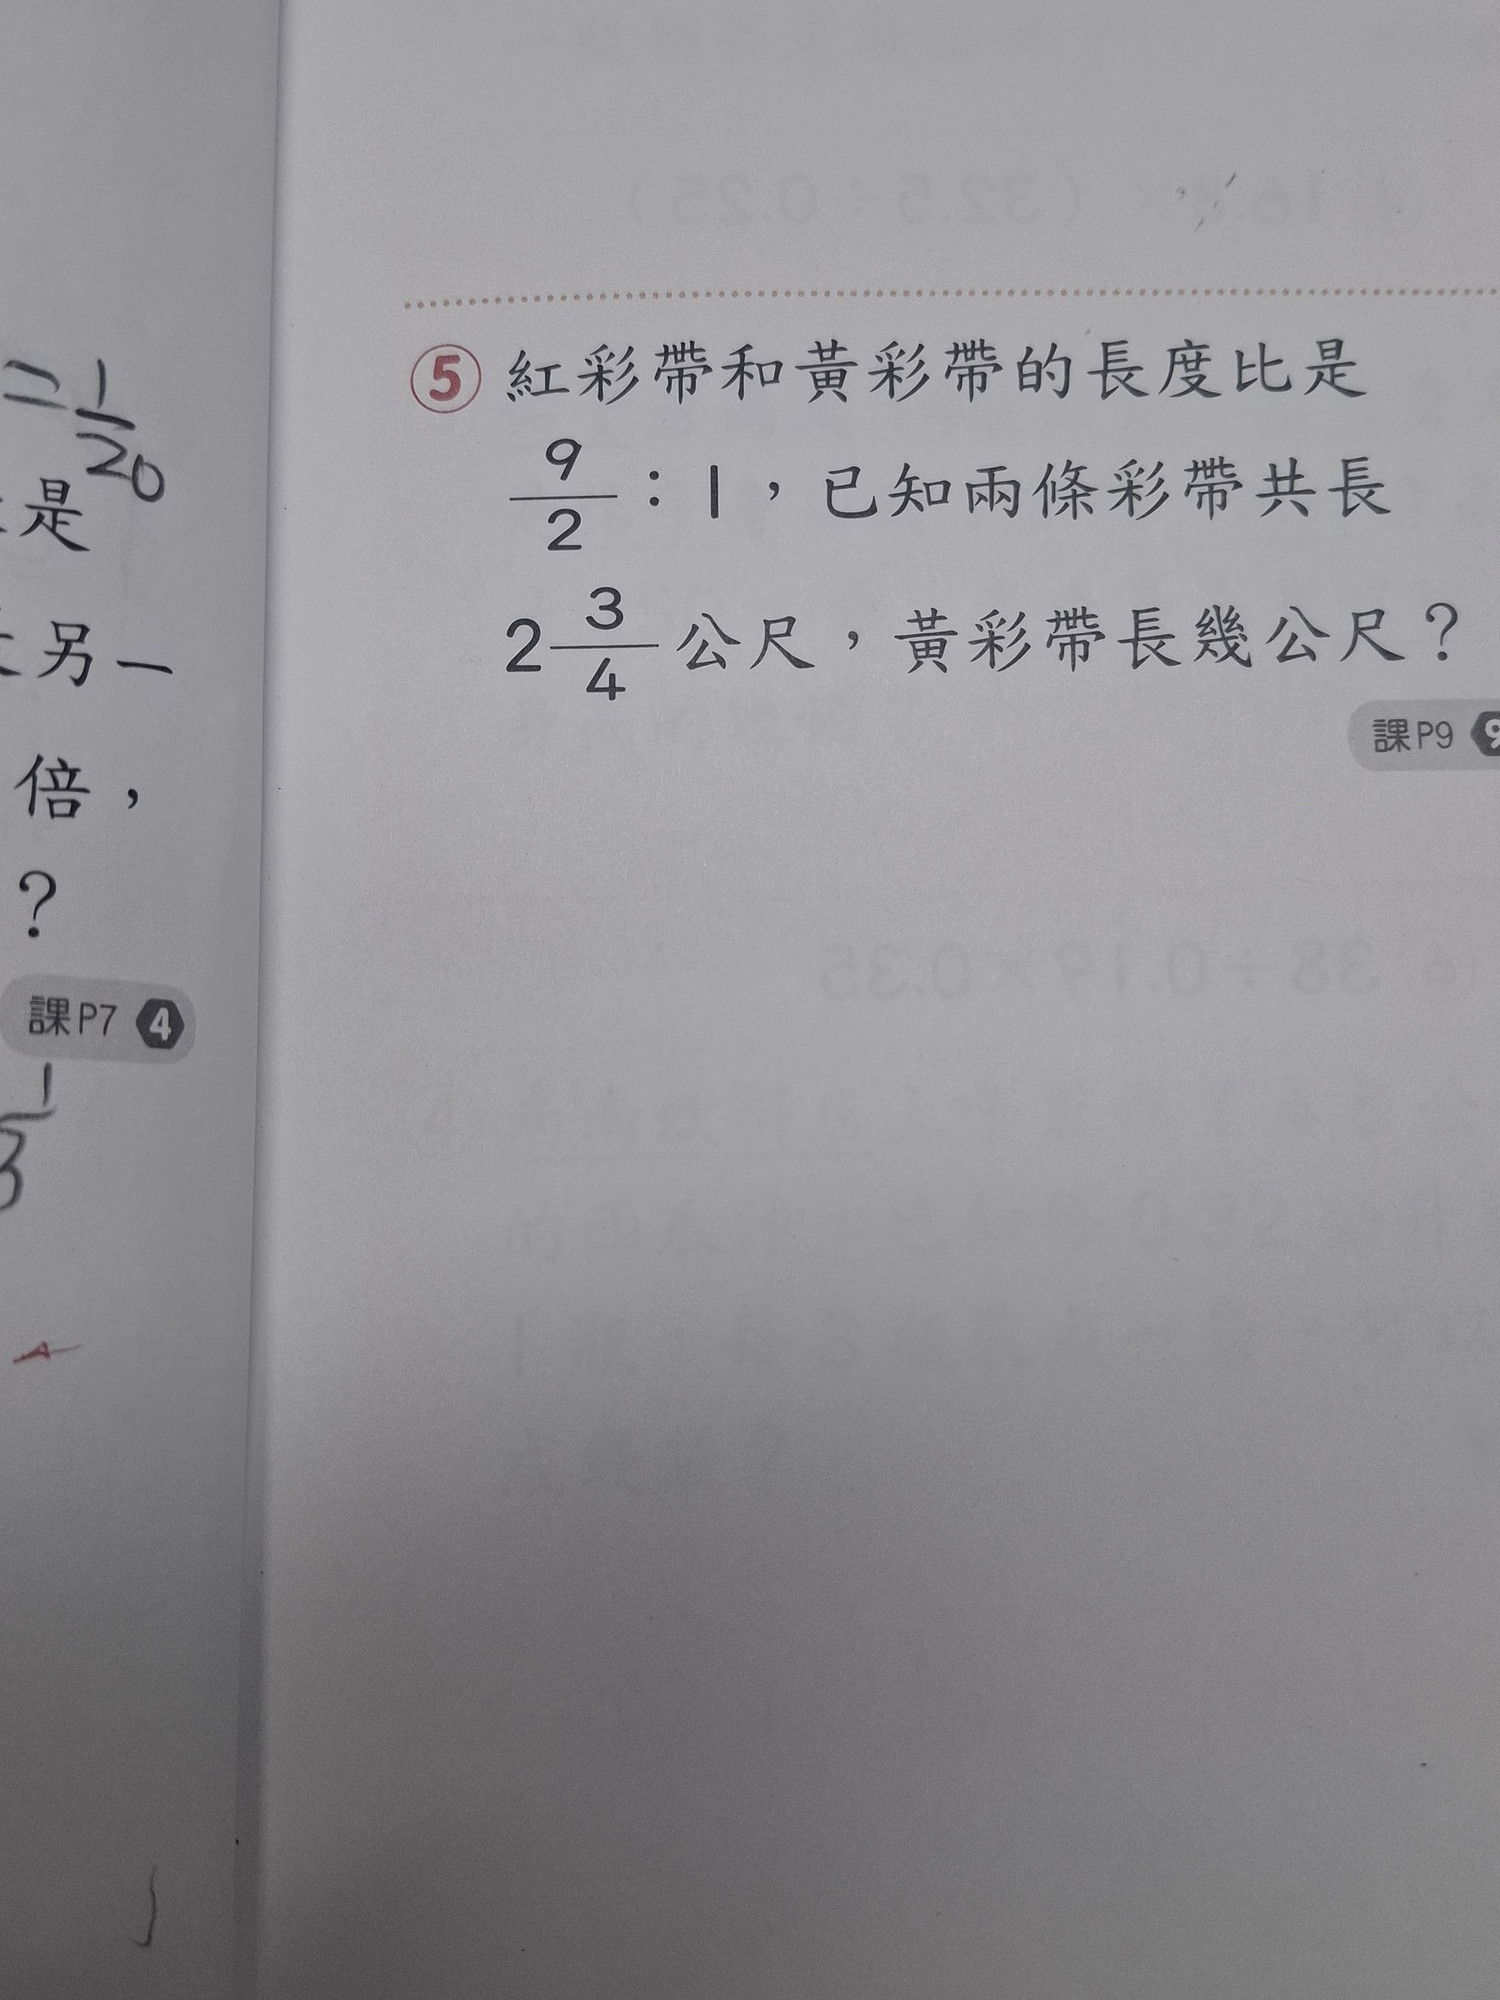 = 1/20
是
另一
倍，
？
課P7 4
1
⑤ 紅彩帶和黃彩帶的長度比是
9/2：1，已知兩條彩帶共長
2 3/4 公尺，黃彩帶長幾公尺？
課P9 9